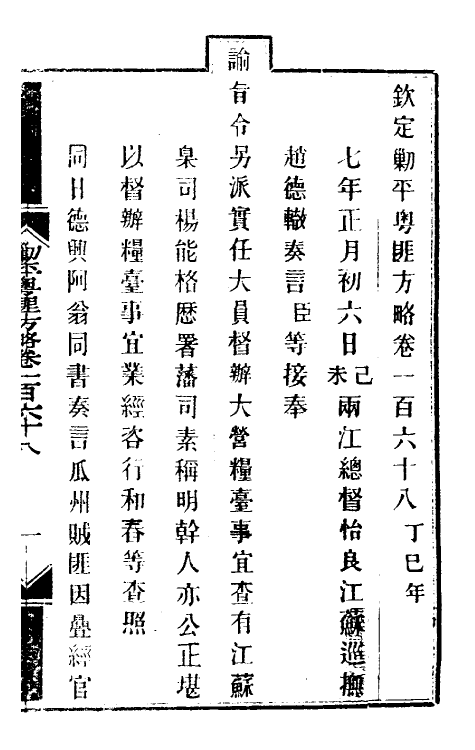 欽定勦平粤匪方略卷一百六十八 丁巳年
七年正月初六日己未兩江總督怡良江蘇巡撫
趙德轍奏言臣等接奉
諭旨令另派實任大員督辦大營糧臺事宜查有江蘇
臬司楊能格歷署藩司素稱明幹人亦公正堪
以督辦糧臺事宜業經咨行和春等查照
同日德興阿翁同書奏言瓜州賊匪因疊經官
勦平粤匪方略卷一百六十八 一